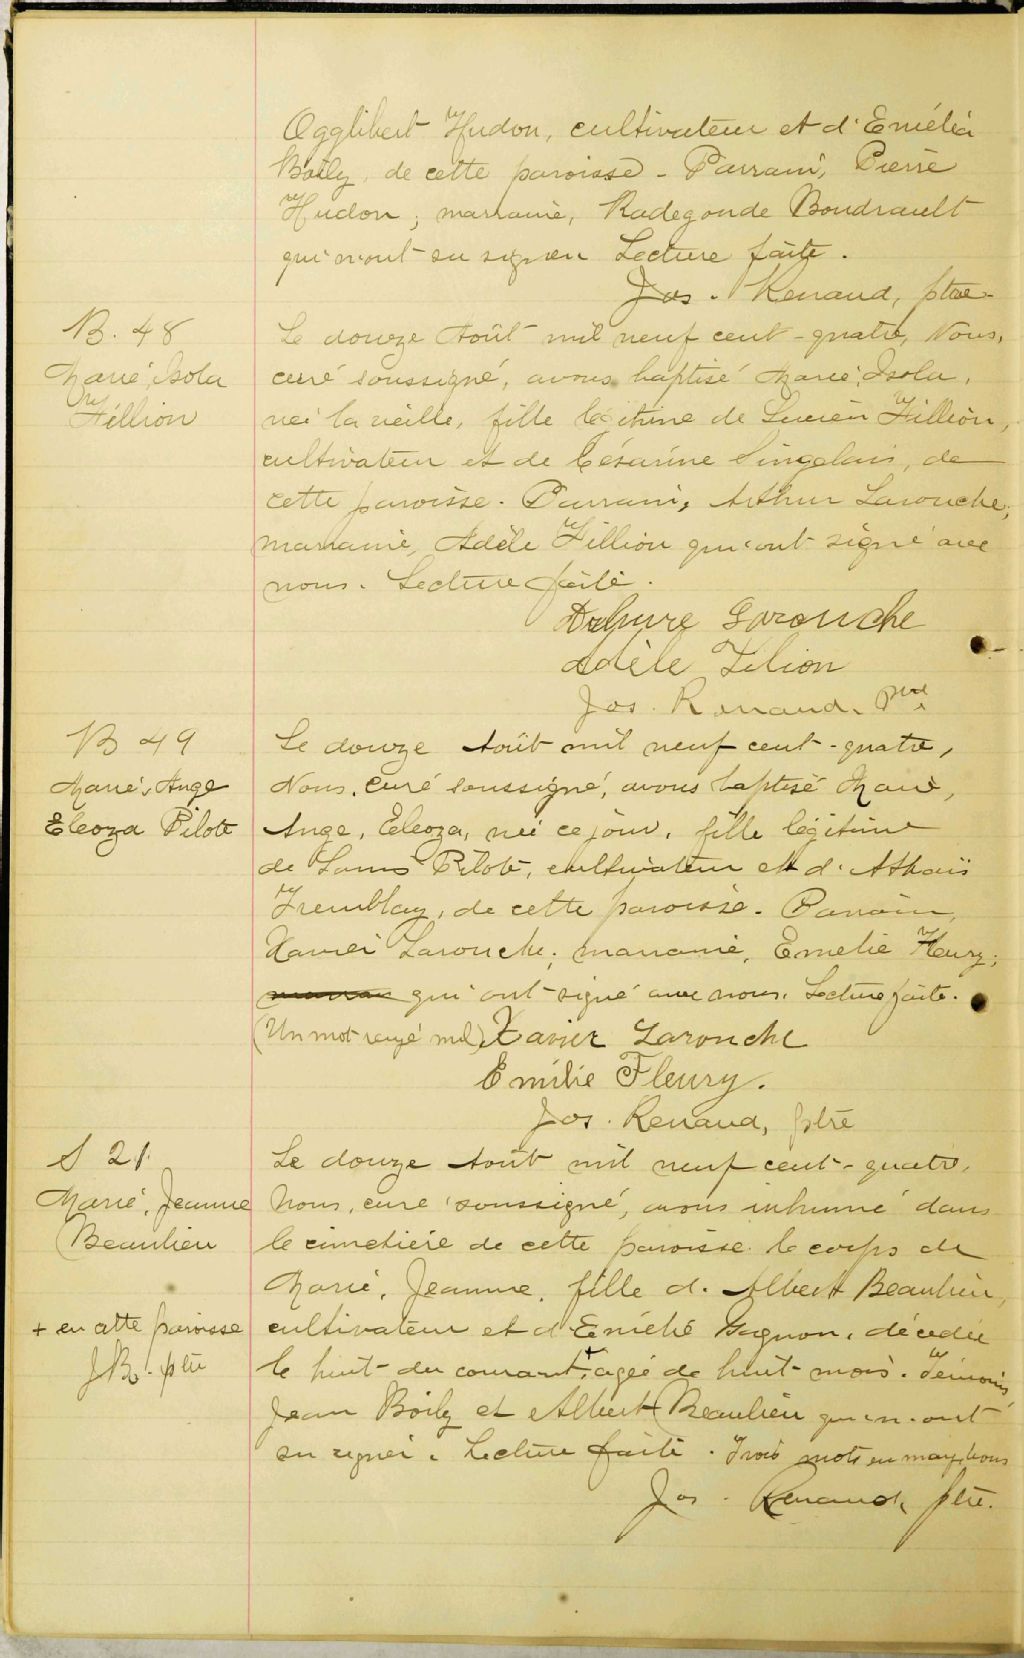 Ogglibert Hudon, cultivateur et d'Emélia
Boily, de cette paroisse - Parrain, Pierre
Hudon, marraine, Radegonde Boudrault
qui n'ont su signer Lecture faite.
Jos. Renaud, ptre.
B. 48
Marie, Isola
Fillion
Le douze Août mil neuf cent-quatre, Nous,
curé soussigné, avons baptisé Marie, Isola,
née la veille, fille légitime de Lucien Fillion,
cultivateur et de Césarine Singelais, de
cette paroisse. Parrain, Arthur Larouche;
marraine, Adèle Fillion qui ont signé avec
nous. Lecture faite.
Arthure Larouche
Adèle Filion
Jos. Renaud, Ptre
B 49
Marie, Ange
Eleoza Pilote
Le douze Août mil neuf cent-quatre,
Nous, curé soussigné, avons baptisé Marie,
Ange, Eleoza, née ce jour, fille légitime
de Louis Pilote, cultivateur et d'Athaïs
Tremblay, de cette paroisse. Parrain,
Xavier Larouche; marraine, Emelie Fleury;
qui ont signé avec nous. Lecture faite.
(Un mot rayé nul) Xavier Larouche
Emilie Fleury.
Jos. Renaud, ptre
S 21
Marie, Jeanne
Beaulieu
+ en cette paroisse
J.R. ptre
Le douze Août mil neuf cent-quatre,
Nous, curé soussigné, avons inhumé dans
le cimetière de cette paroisse le corps de
Marie, Jeanne, fille d'Albert Beaulieu,
cultivateur et d'Emélie Gagnon, décédée
le huit du courant + agée de huit mois. Témoins
Jean Boily et Albert Beaulieu qui n'ont
su signer. Lecture faite. Trois mots en marge bons
Jos. Renaud, ptre.